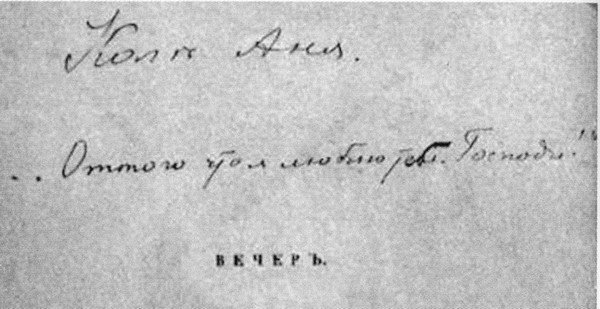 Колѣ Аня.
.. Оттого что я люблю тебя. Господи!"
ВЕЧЕРЪ.